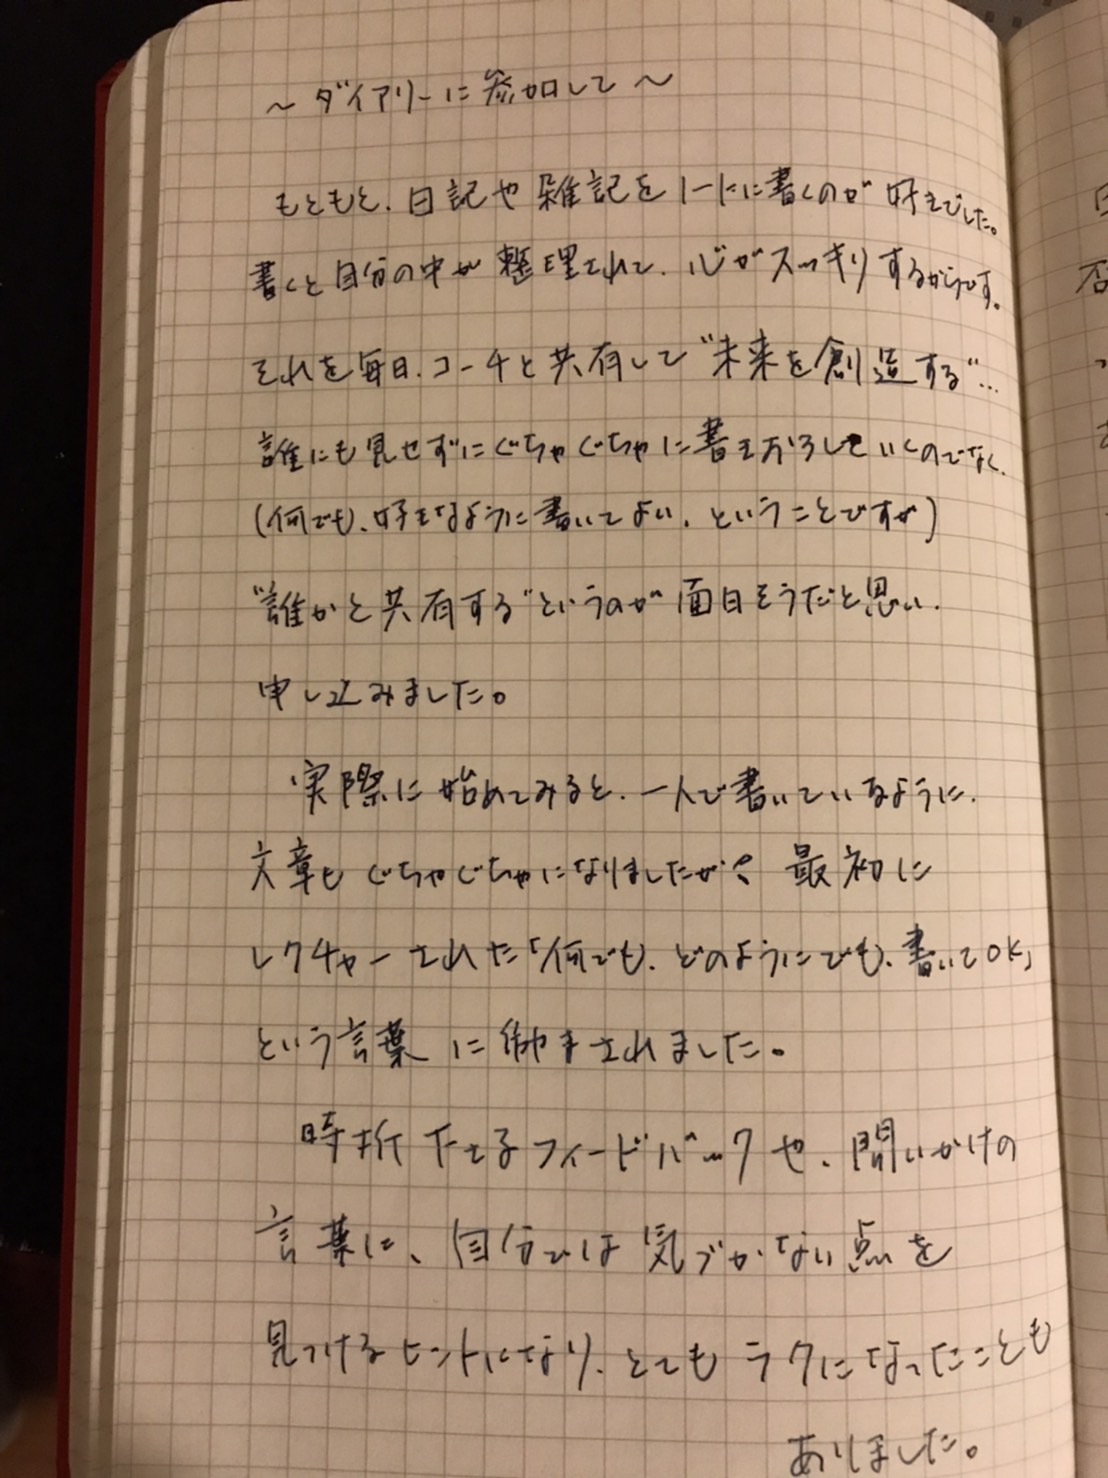 〜ダイアリーに参加して〜
もともと、日記や雑記をノートに書くのが好きでした。
書くと自分の中が整理されて、心がスッキリするからです。
それを毎日、コーチと共有して“未来を創造する”…
誰にも見せずにぐちゃぐちゃに書きおろしていくのでなく、
(何でも、好きなように書いてよい、ということですが)
“誰かと共有する”というのが面白そうだと思い、
申し込みました。
実際に始めてみると、一人で書いているように、
文章もぐちゃぐちゃになりましたが、最初に
レクチャーされた「何でも、どのようにでも、書いてOK」
という言葉に励まされました。
時折下さるフィードバックや、問いかけの
言葉に、自分では気づかない点を
見つけるヒントになり、とてもラクになったことも
ありました。
日
否